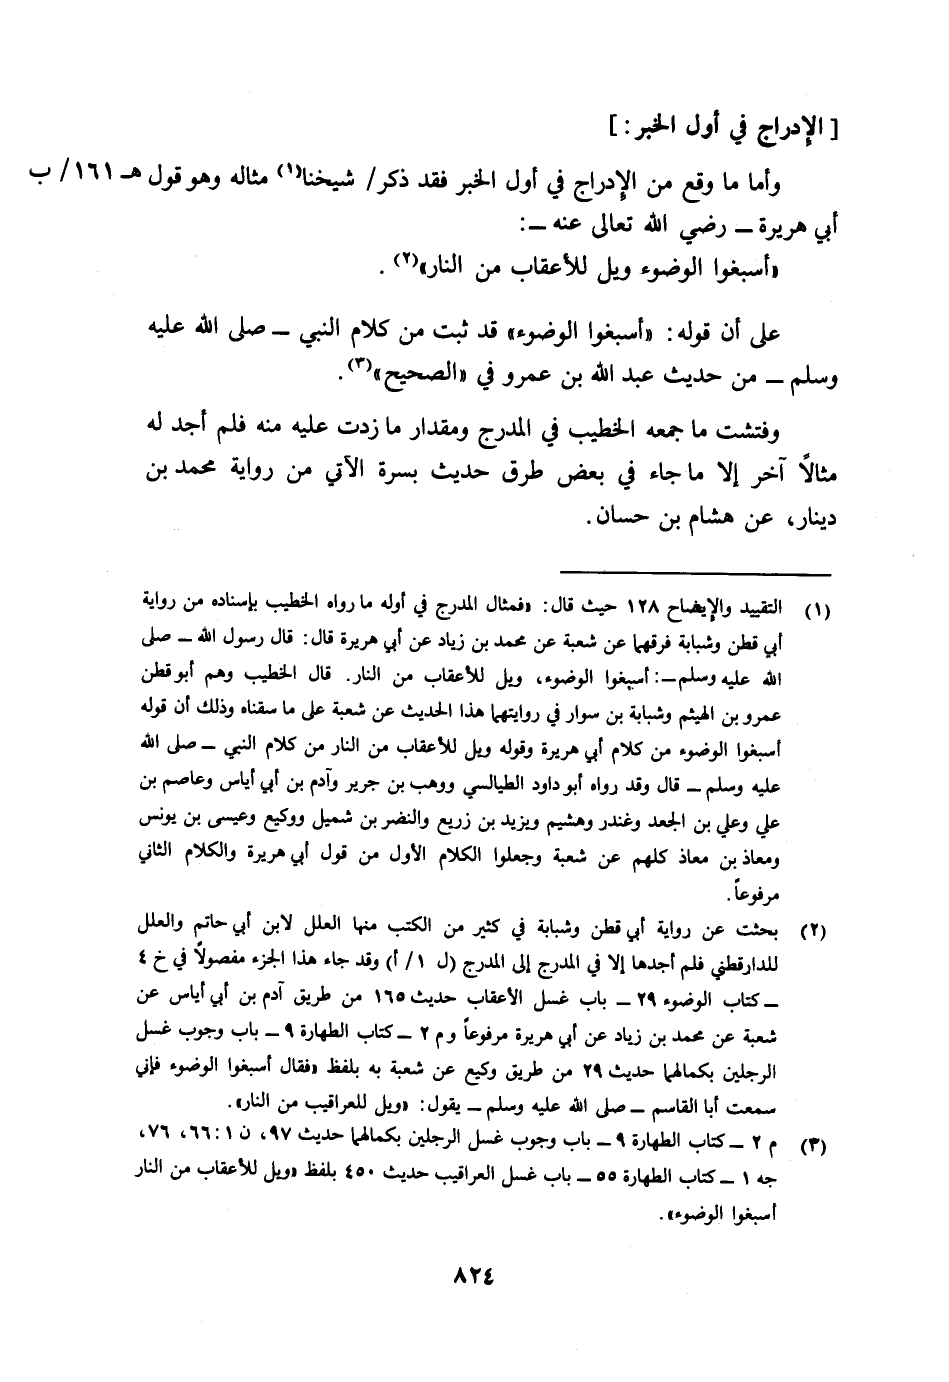 [ الإدراج في أول الخبر : ]
وأما ما وقع من الإدراج في أول الخبر فقد ذكر/ شيخنا(١) مثاله وهو قول هـ ١٦١/ ب
أبي هريرة ــ رضي الله تعالى عنه ــ:
«أسبغوا الوضوء ويل للأعقاب من النار»(٢) .
على أن قوله: «أسبغوا الوضوء» قد ثبت من كلام النبي ــ صلى الله عليه
وسلم ــ من حديث عبد الله بن عمرو في «الصحيح»(٣).
وفتشت ما جمعه الخطيب في المدرج ومقدار ما زدت عليه منه فلم أجد له
مثالاً آخر إلا ما جاء في بعض طرق حديث بسرة الآتي من رواية محمد بن
دينار، عن هشام بن حسان.
(١) التقييد والإيضاح ١٢٨ حيث قال: «فمثال المدرج في أوله ما رواه الخطيب بإسناده من رواية
أبي قطن وشبابة فرقهما عن شعبة عن محمد بن زياد عن أبي هريرة قال: قال رسول الله ــ صلى
الله عليه وسلم ــ: أسبغوا الوضوء، ويل للأعقاب من النار. قال الخطيب وهم أبو قطن
عمرو بن الهيثم وشبابة بن سوار في روايتهما هذا الحديث عن شعبة على ما سقناه وذلك أن قوله
أسبغوا الوضوء من كلام أبي هريرة وقوله ويل للأعقاب من النار من كلام النبي ــ صلى الله
عليه وسلم ــ قال وقد رواه أبو داود الطيالسي ووهب بن جرير وآدم بن أبي أياس وعاصم بن
علي وعلي بن الجعد وغندر وهشيم ويزيد بن زريع والنضر بن شميل ووكيع وعيسى بن يونس
ومعاذ بن معاذ كلهم عن شعبة وجعلوا الكلام الأول من قول أبي هريرة والكلام الثاني
مرفوعاً.
(٢) بحثت عن رواية أبي قطن وشبابة في كثير من الكتب منها العلل لابن أبي حاتم والعلل
للدارقطني فلم أجدها إلا في المدرج إلى المدرج (ل ١/ أ) وقد جاء هذا الجزء مفصولاً في خ ٤
ــ كتاب الوضوء ٢٩ ــ باب غسل الأعقاب حديث ١٦٥ من طريق آدم بن أبي أياس عن
شعبة عن محمد بن زياد عن أبي هريرة مرفوعاً و م ٢ ــ كتاب الطهارة ٩ ــ باب وجوب غسل
الرجلين بكمالهما حديث ٢٩ من طريق وكيع عن شعبة به بلفظ «فقال أسبغوا الوضوء فإني
سمعت أبا القاسم ــ صلى الله عليه وسلم ــ يقول: «ويل للعراقيب من النار».
(٣) م ٢ ــ كتاب الطهارة ٩ ــ باب وجوب غسل الرجلين بكمالهما حديث ٩٧، ن ١: ٦٦، ٧٦،
جه ١ ــ كتاب الطهارة ٥٥ ــ باب غسل العراقيب حديث ٤٥٠ بلفظ «ويل للأعقاب من النار
أسبغوا الوضوء».
٨٢٤